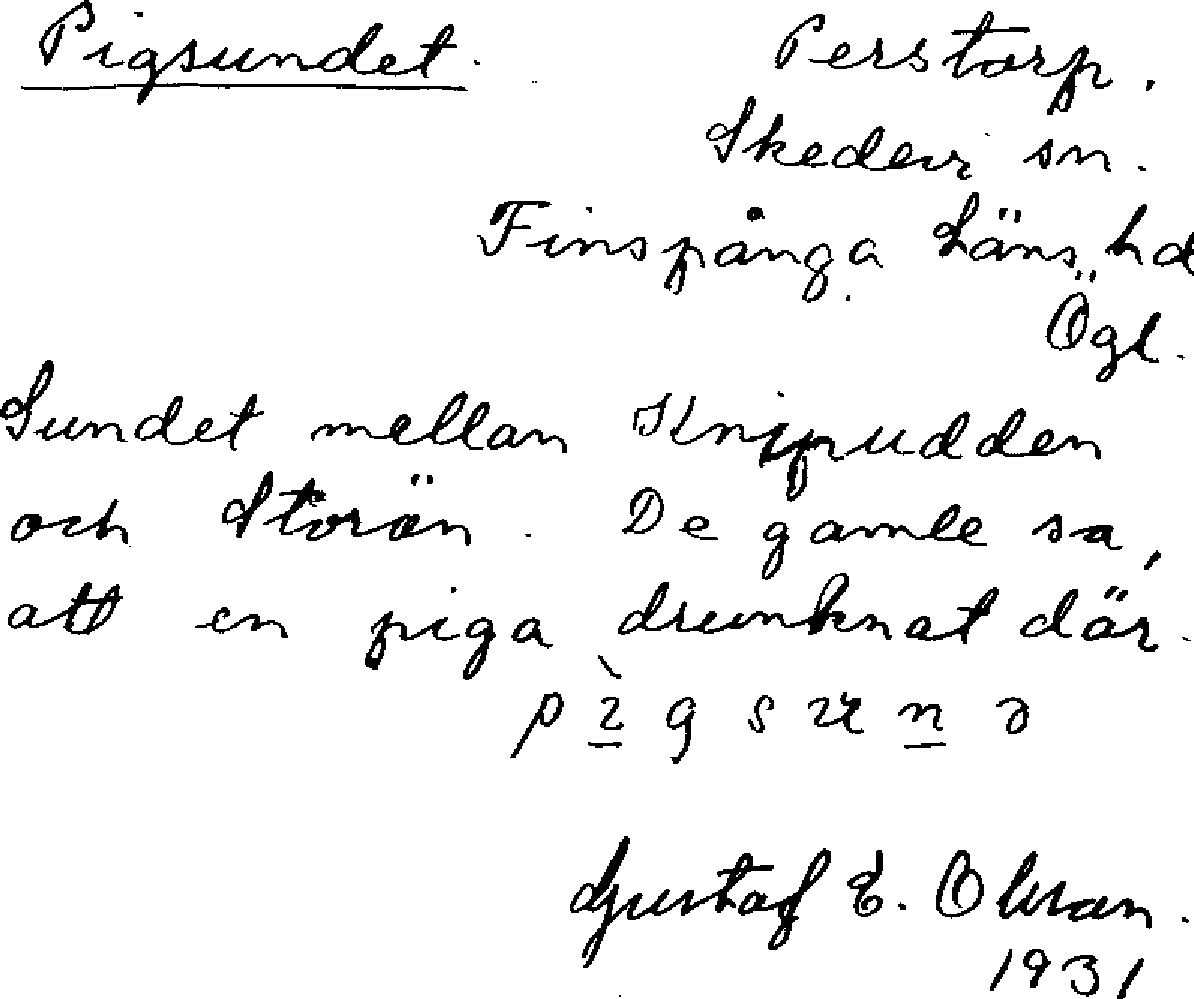 Pigsundet. Perstorp.
Skedevi sn.
Finspånga Läns hd
Ögl.
Sundet mellan Knipudden
och Storön. De gamle sa,
att en piga drunknat där.
pìgsunə
Gustaf E. Olsson.
1931